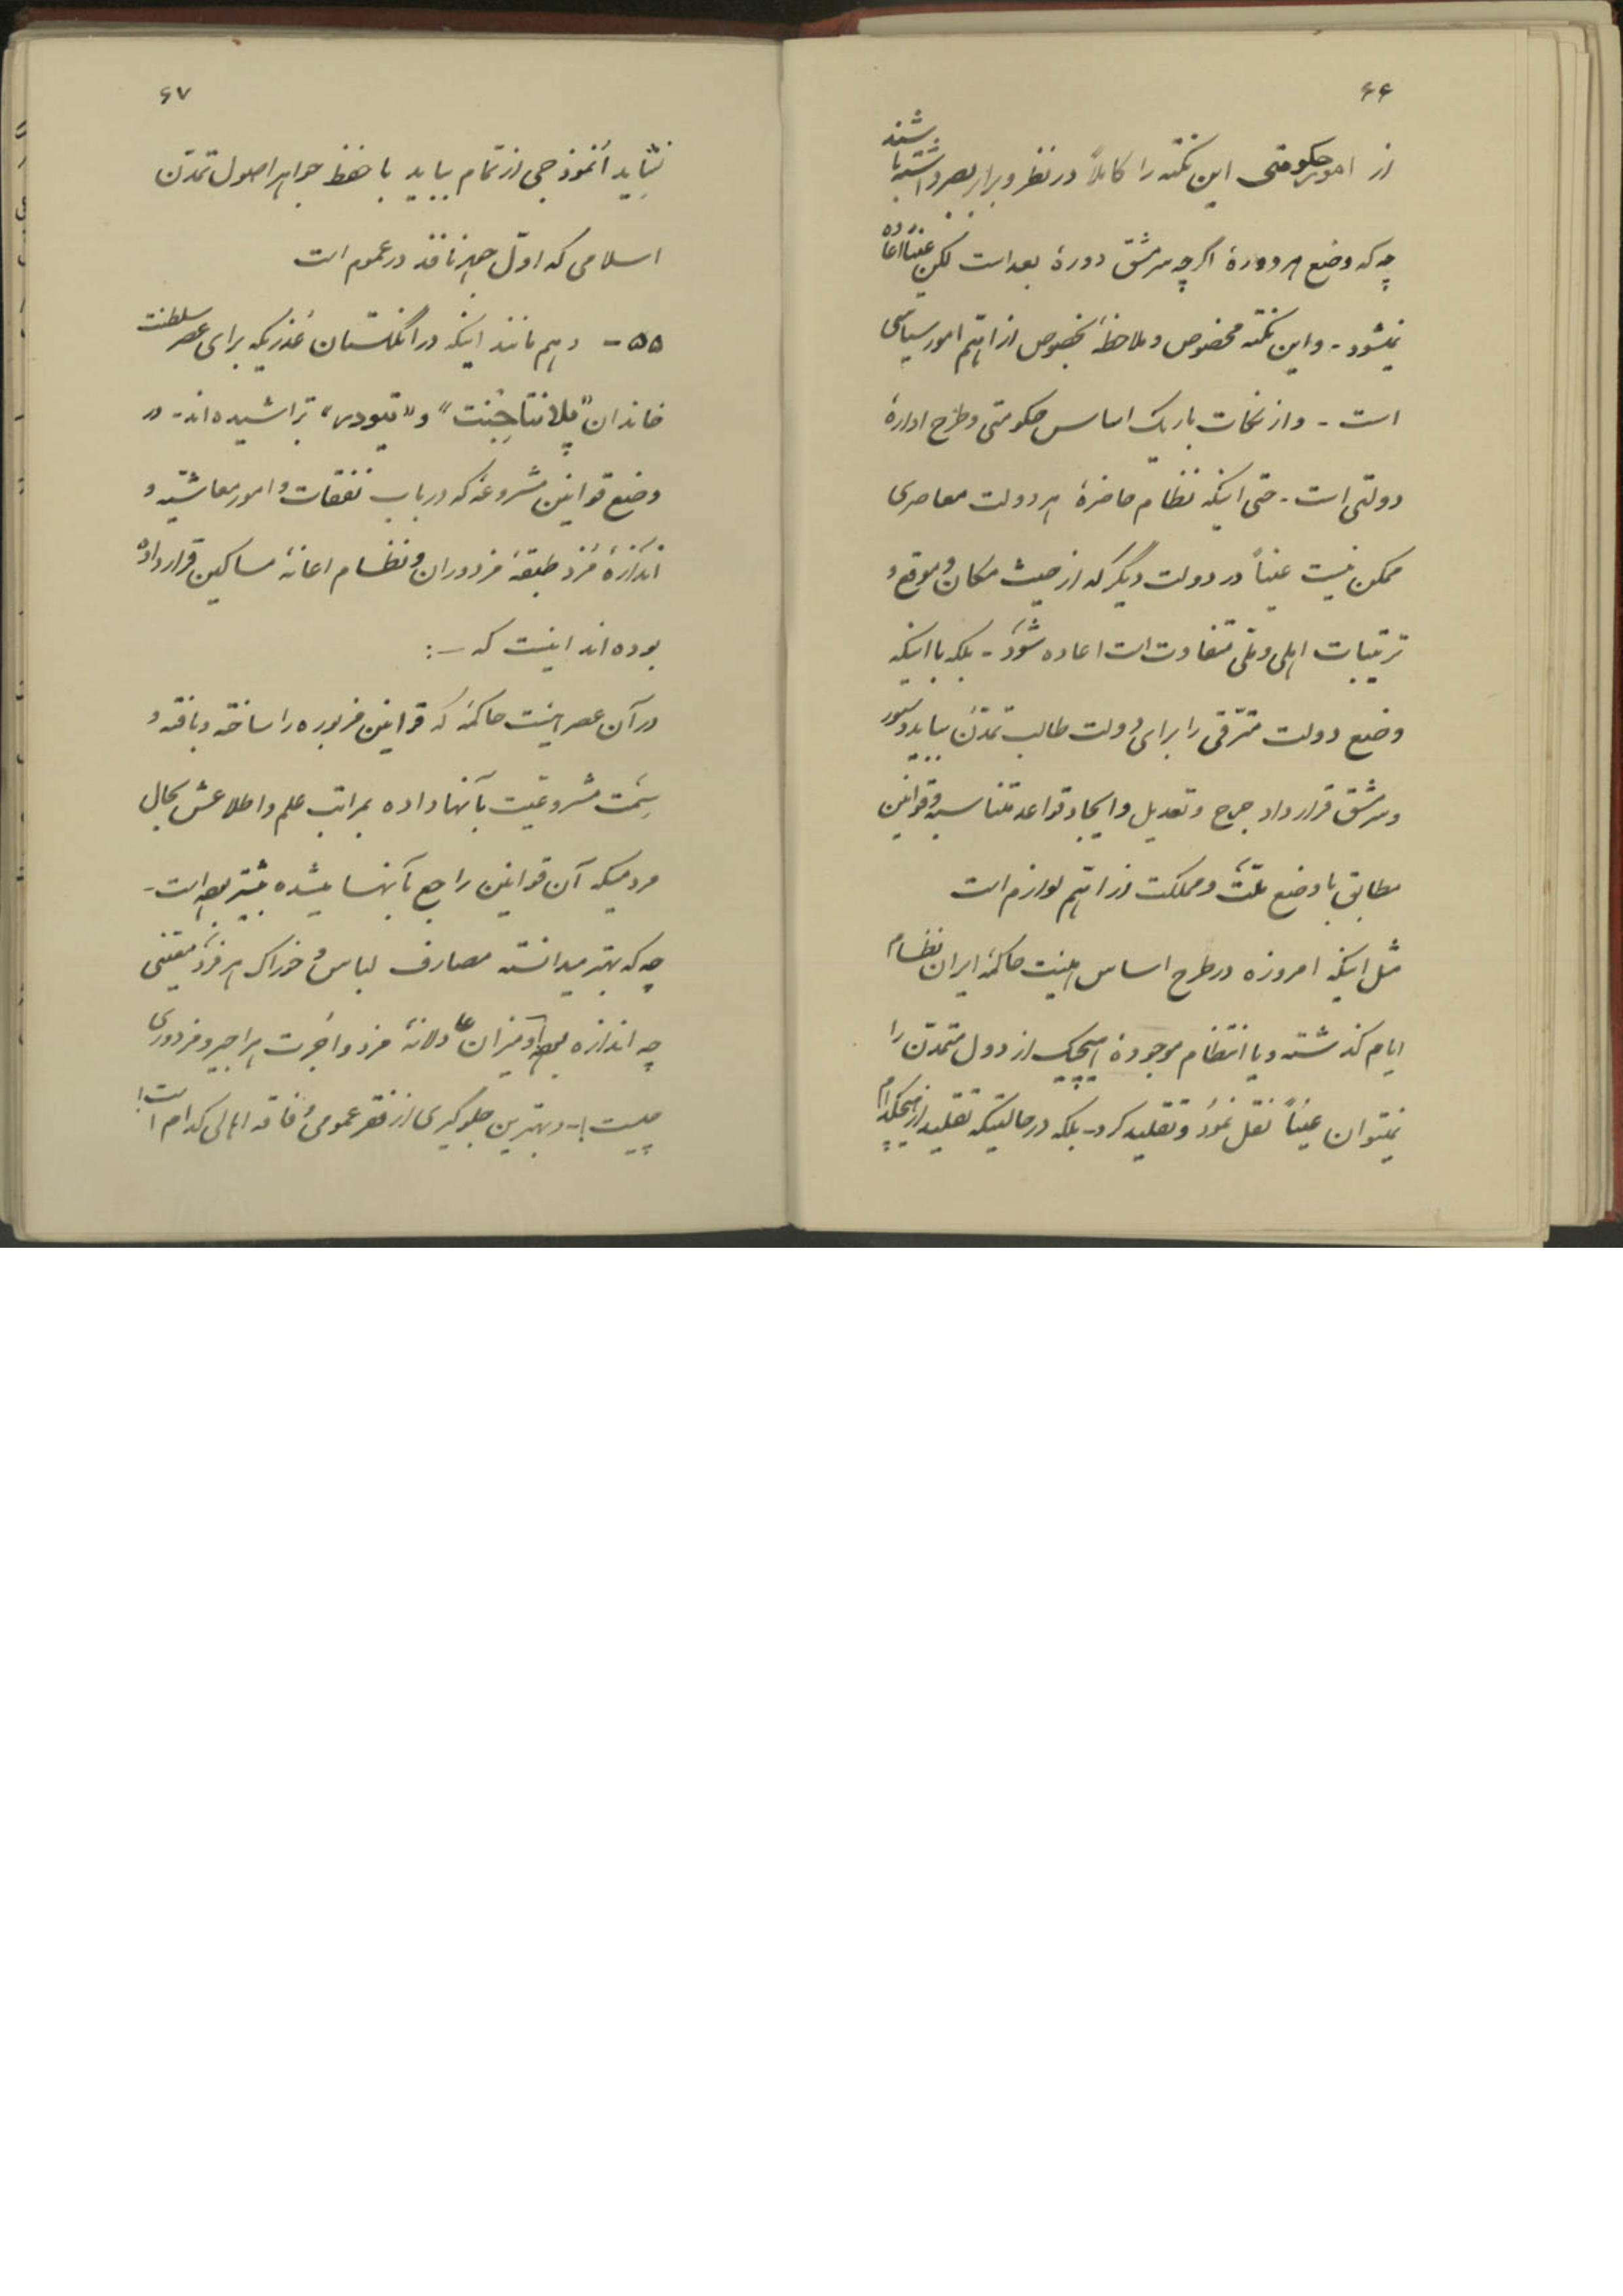 ۶۶
از امور حکومتی این نکته را کاملاً در نظر و برابر بصر داشته باشند
چه که وضع هر دورهٔ اگرچه سرمشق دورهٔ بعد است لکن عیناً اعاده
نمیشود - و این نکته مخصوص و ملاحظهٔ بخصوص از اهمّ امور سیاسی
است - و از نکات باریک اساس حکومتی و طرح ادارهٔ
دولتی است - حتی اینکه نظام حاضرهٔ هر دولت معاصری
ممکن نیست عیناً در دولت دیگر که از حیث مکان و موقع و
ترتیبات اهلی و ملّی متفاوت است اعاده شود - بلکه با اینکه
وضع دولت مترقّی را برای دولت طالب تمدّن بباید دستور
و سرمشق قرار داد جرح و تعدیل و ایجاد قواعد متناسبه و قوانین
مطابق با وضع ملّت و مملکت از اهمّ لوازم است
مثل اینکه امروزه در طرح اساس هیئت حاکمهٔ ایران نظام
ایام گذشته و یا انتظام موجودهٔ هیچیک از دول متمدّن را
نمیتوان عیناً نقل نمود و تقلید کرد - بلکه در حالتیکه تقلید از هیچکدام
۶۷
نشاید اُنموذجی از تمام بباید با حفظ جواهر اصول تمدّن
اسلامی که اوّل جوهر نافذ در عموم است
۵۵ - و هم مانند اینکه در انگلستان عذریکه برای عصر سلطنت
خاندان "پلانتاجِنِت" و "تیودر" تراشیده‌اند - در
وضع قوانین مشروعهٔ که در باب نفقات و امور معاشیّه و
اندازهٔ مُزد طبقهٔ مزدوران و نظام اعانهٔ مساکین قرار داده
بوده‌اند اینست که -:
در آن عصر هیئت حاکمهٔ که قوانین مزبوره را ساخته و بافته و
سِمَت مشروعیّت بآنها داده بمراتب علم و اطلاعش بحال
مردمیکه آن قوانین راجع بآنها میشده بیشتر بوده است -
چه که بهتر میدانسته مصارف لباس و خوراک هر فرد معیّنی
چه اندازه بوده و میزان عادلانهٔ مزد و اجرت هر اجیر و مزدوری
چیست !- و بهترین جلوگیری از فقر عمومی و فاقهٔ اهالی کدام است!